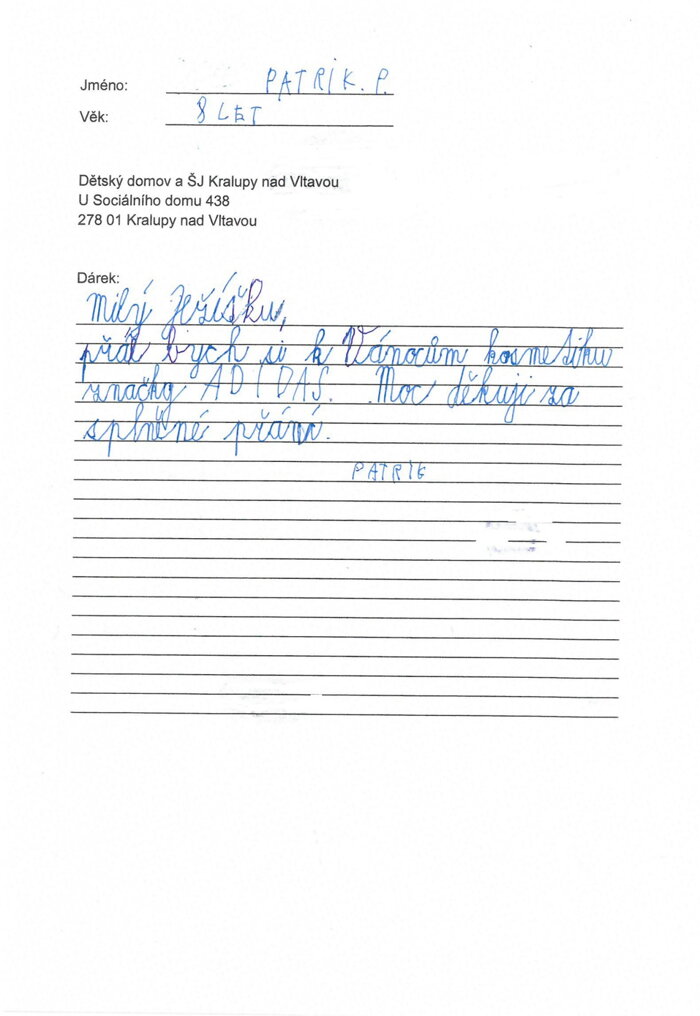 Jméno: PATRIK. P.
Věk: 8 LET
Dětský domov a ŠJ Kralupy nad Vltavou
U Sociálního domu 438
278 01 Kralupy nad Vltavou
Dárek:
Milý Ježíšku,
přál bych si k Vánocům kosmetiku
značky ADIDAS. Moc děkuji za
splněné přání.
PATRIK